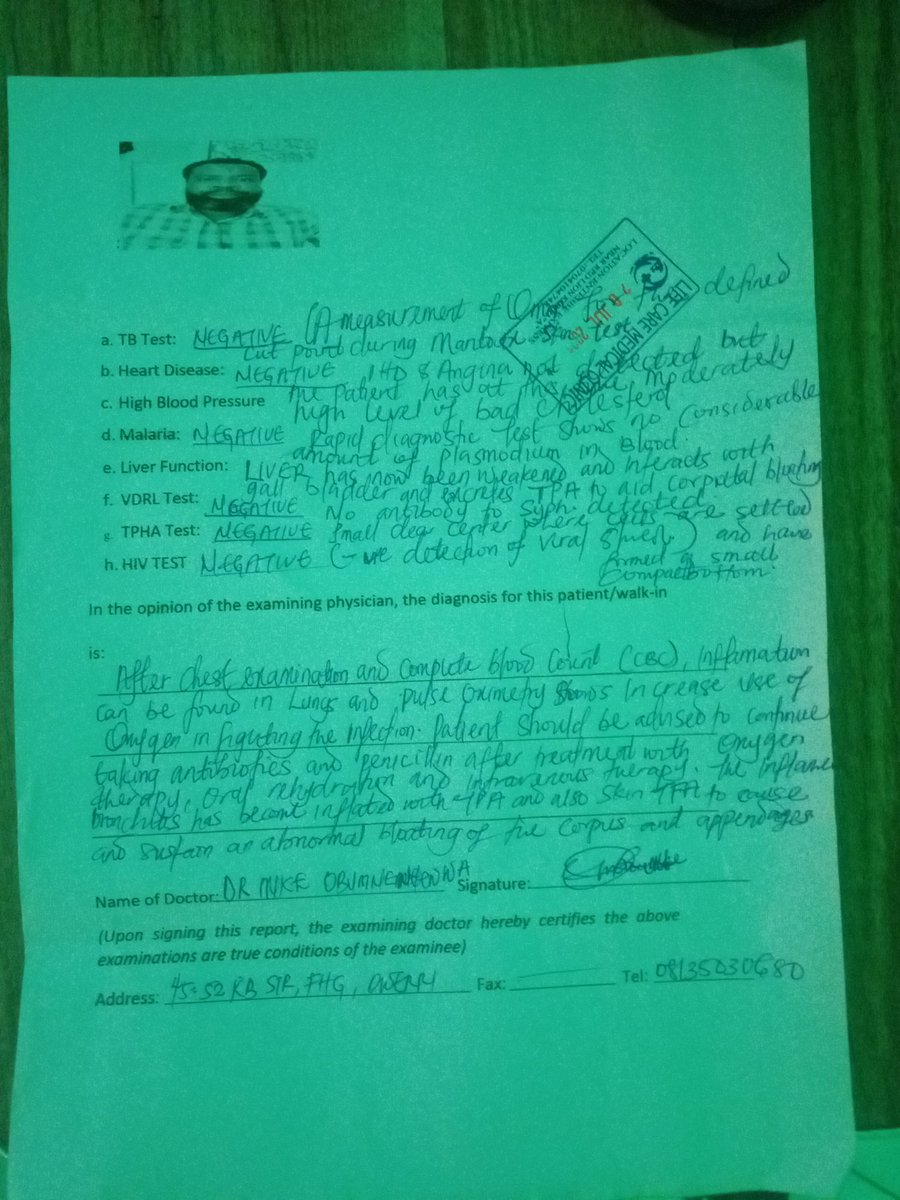 LIFE CARE MEDICAL CLINIC
a. TB Test: NEGATIVE (A measurement of defined
cut point during Mantoux test
b. Heart Disease: NEGATIVE IHD & Angina not detected but
c. High Blood Pressure the patient has at moderately
high level of bad cholesterol
d. Malaria: NEGATIVE Rapid diagnostic Test shows no considerable
amount of plasmodium in Blood.
e. Liver Function: LIVER has now been weakened and interacts with
gall bladder and excretes TPA to aid corpietal bloating
f. VDRL Test: NEGATIVE No antibody to Syph. detected
g. TPHA Test: NEGATIVE Small center where cells are settled
h. HIV TEST NEGATIVE detection of viral and have
formed a small
compact bottom.
In the opinion of the examining physician, the diagnosis for this patient/walk-in
is:
After chest examination and complete blood count (CBC), inflamation
can be found in Lungs and pulse oximetry shows increase use of
Oxygen in the infection. Patient should be advised to continue
taking antibiotics and penicillin after treatment with oxygen
therapy, oral rehydration and intravenous therapy. The
has become inflated with TPA and also skin to cause
and sustain an abnormal bloating of the corpus and appendages
Name of Doctor: DR MIKE Signature:
(Upon signing this report, the examining doctor hereby certifies the above
examinations are true conditions of the examinee)
Address: 45-52 STR, OWERRI Fax: Tel: 08135030680